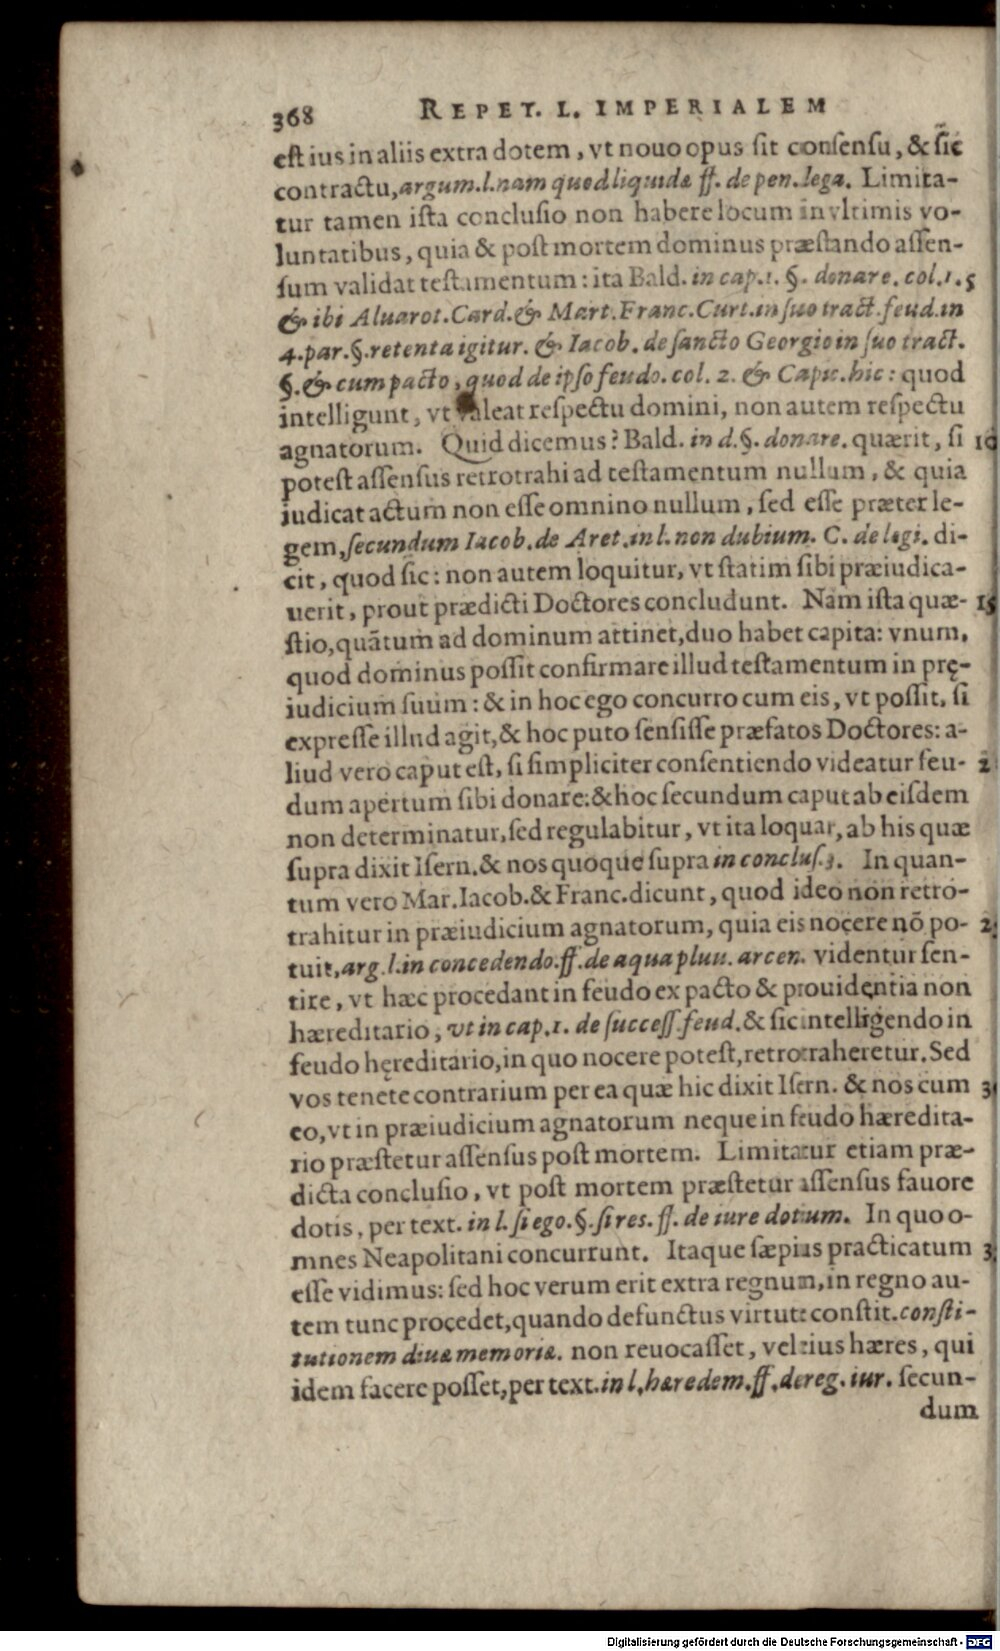 368 REPET. L. IMPERIALEM
est ius in aliis extra dotem, vt nouo opus sit consensu, & sic
contractu, argum. l. nam quod liquidæ ff. de pen. lega. Limita-
tur tamen ista conclusio non habere locum in vltimis vo-
luntatibus, quia & post mortem dominus præstando assen-
sum validat testamentum: ita Bald. in cap. 1. §. donare. col. 1. 5
& ibi Aluarot. Card. & Mart. Franc. Curt. in suo tract. feud. in
4. par. §. retenta igitur. & Iacob. de sancto Georgio in suo tract.
§. & cum pacto, quod de ipso feudo. col. 2. & Capic. hic: quod
intelligunt, vt valeat respectu domini, non autem respectu
agnatorum. Quid dicemus? Bald. in d. §. donare. quærit, si 10
potest assensus retrotrahi ad testamentum nullum, & quia
iudicat actum non esse omnino nullum, sed esse præter le-
gem, secundum Iacob. de Aret. in l. non dubium. C. de legi. di-
cit, quod sic: non autem loquitur, vt statim sibi præiudica-
uerit, prout prædicti Doctores concludunt. Nam ista quæ- 15
stio, quãtum ad dominum attinet, duo habet capita: vnum,
quod dominus possit confirmare illud testamentum in prę-
iudicium suum: & in hoc ego concurro cum eis, vt possit, si
expresse illud agit, & hoc puto sensisse præfatos Doctores: a-
liud vero caput est, si simpliciter consentiendo videatur feu- 2
dum apertum sibi donare: & hoc secundum caput ab eisdem
non determinatur, sed regulabitur, vt ita loquar, ab his quæ
supra dixit Isern. & nos quoque supra in conclus. 3. In quan-
tum vero Mar. Iacob. & Franc. dicunt, quod ideo non retro-
trahitur in præiudicium agnatorum, quia eis nocere nõ po- 2
tuit, arg. l. in concedendo. ff. de aqua pluu. arcen. videntur sen-
tire, vt hæc procedant in feudo ex pacto & prouidentia non
hæreditario, vt in cap. 1. de success. feud. & sic intelligendo in
feudo hęreditario, in quo nocere potest, retrotraheretur. Sed
vos tenete contrarium per ea quæ hic dixit Isern. & nos cum 3
eo, vt in præiudicium agnatorum neque in feudo hæredita-
rio præstetur assensus post mortem. Limitatur etiam præ-
dicta conclusio, vt post mortem præstetur assensus fauore
dotis, per text. in l. si ego. §. si res. ff. de iure dotium. In quo o-
mnes Neapolitani concurrunt. Itaque sæpius practicatum 3
esse vidimus: sed hoc verum erit extra regnum, in regno au-
tem tunc procedet, quando defunctus virtute constit. consti-
tutionem diuæ memoriæ. non reuocasset, vel eius hæres, qui
idem facere posset, per text. in l. hæredem. ff. de reg. iur. secun-
dum
Digitalisierung gefördert durch die Deutsche Forschungsgemeinschaft - DFG